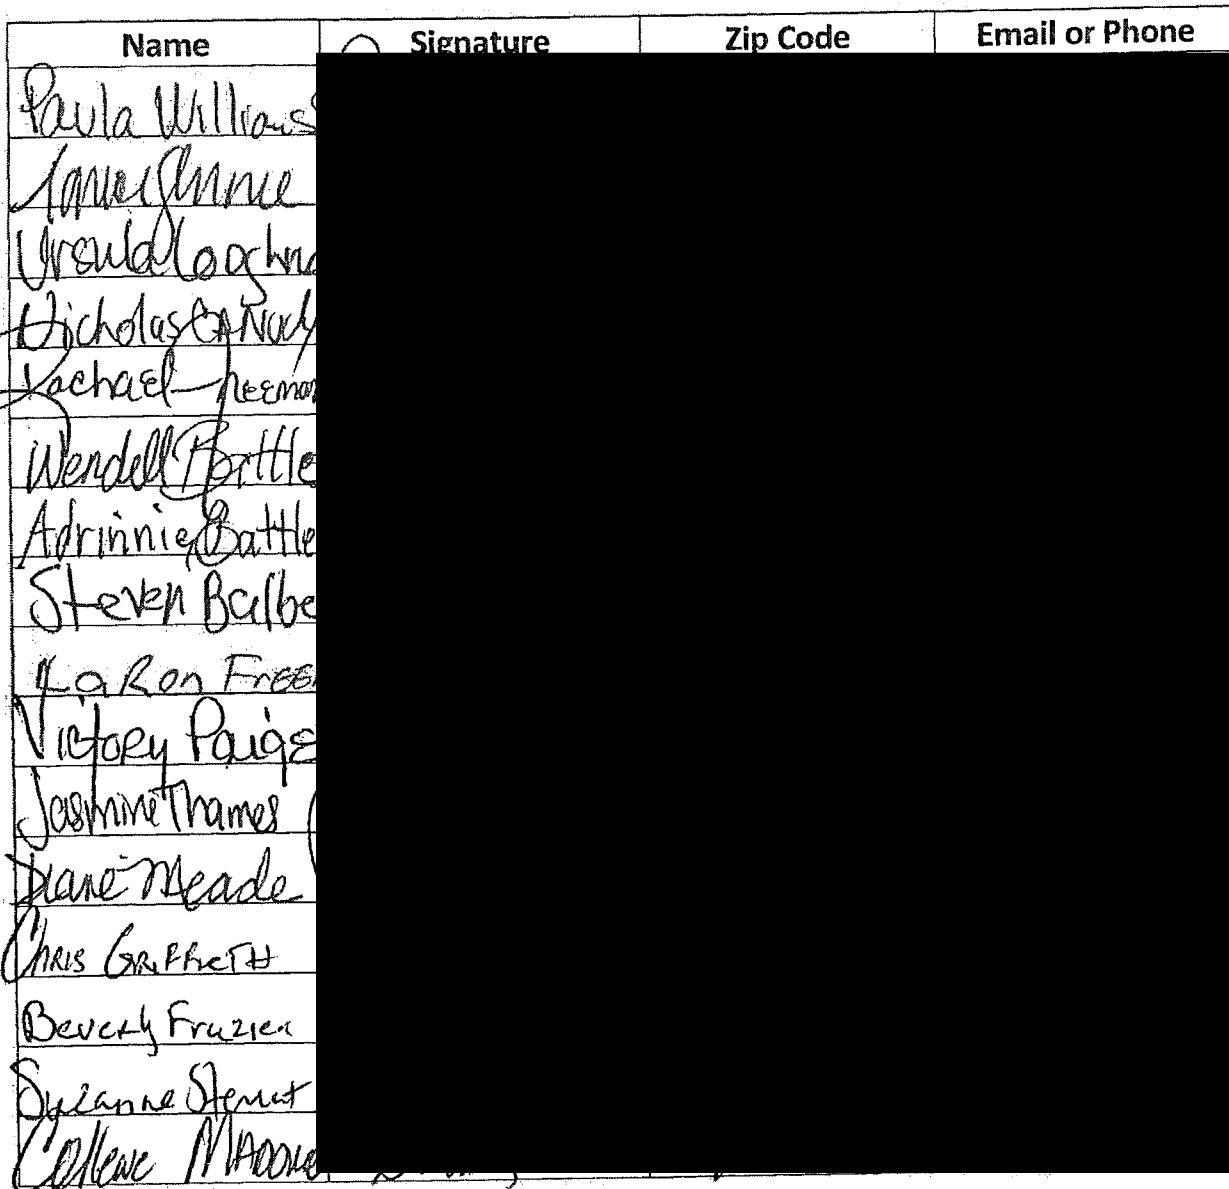 Name Signature Zip Code Email or Phone
Paula Williams
Ursula
Nicholas
Rachael
Wendell Battle
Adrinnie Battle
Steven Balbe
LaRon Free
Victory Paige
Jasmine Thames
Diane Meade
Chris Griffieth
Beverly Frazier
Suzanne Stewart
Collene